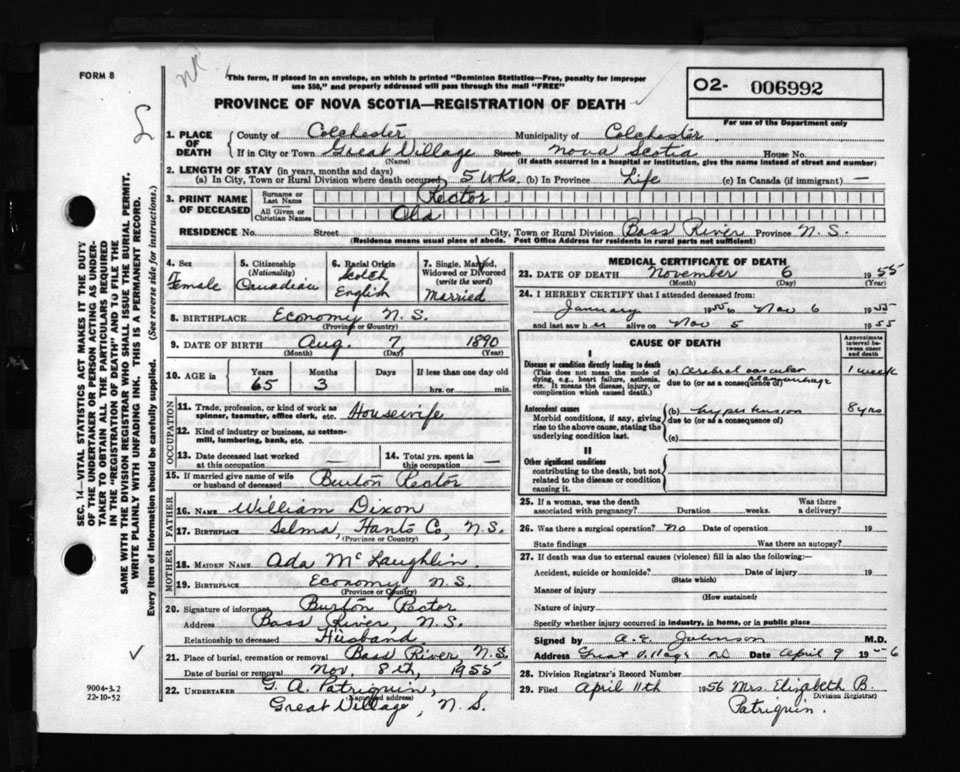 FORM 8
NR
This form, if placed in an envelope, on which is printed "Dominion Statistics—Free, penalty for improper
use $50," and properly addressed will pass through the mail "FREE"
PROVINCE OF NOVA SCOTIA—REGISTRATION OF DEATH
O2- 006992
For use of the Department only
1. PLACE OF DEATH
County of Colchester Municipality of Colchester
If in City or Town Great Village Street Nova Scotia House No.
(Name) (If death occurred in a hospital or institution, give the name instead of street and number)
2. LENGTH OF STAY (in years, months and days)
(a) In City, Town or Rural Division where death occurred 5 wks. (b) In Province Life (c) In Canada (if immigrant) —
3. PRINT NAME OF DECEASED
Surname or Last Name Rector
All Given or Christian Names Ola
RESIDENCE No. Street City, Town or Rural Division Bass River Province N.S.
(Residence means usual place of abode. Post Office Address for residents in rural parts not sufficient)
4. Sex
Female
5. Citizenship (Nationality)
Canadian
6. Racial Origin
Scotch
English
7. Single, Married, Widowed or Divorced (write the word)
Married
8. BIRTHPLACE Economy N.S.
(Province or Country)
9. DATE OF BIRTH Aug. 7 1890
(Month) (Day) (Year)
10. AGE in Years Months If less than one day old
65 3 hrs. or min.
OCCUPATION
11. Trade, profession, or kind of work as spinner, teamster, office clerk, etc. Housewife
12. Kind of industry or business, as cotton-mill, lumbering, bank, etc.
13. Date deceased last worked at this occupation —
14. Total yrs. spent in this occupation —
15. If married give name of wife or husband of deceased Burton Rector
FATHER
16. NAME William Dixon
17. BIRTHPLACE Selma, Hants Co, N.S.
(Province or Country)
MOTHER
18. MAIDEN NAME Ada McLaughlin
19. BIRTHPLACE Economy N.S.
(Province or Country)
20. Signature of informant Burton Rector
Address Bass River, N.S.
Relationship to deceased Husband
21. Place of burial, cremation or removal Bass River N.S.
Date of burial or removal Nov. 8th, 1955
22. UNDERTAKER G. A. Patriquin,
(Name and address)
Great Village, N.S.
MEDICAL CERTIFICATE OF DEATH
23. DATE OF DEATH November 6 1955
(Month) (Day) (Year)
24. I HEREBY CERTIFY that I attended deceased from:
January 1955 to Nov 6 1955
and last saw her alive on Nov 5 1955
CAUSE OF DEATH
Approximate interval between onset and death
I
Disease or condition directly leading to death
(This does not mean the mode of dying, e.g., heart failure, asthenia, etc. It means the disease, injury, or complication which caused death.)
(a) Cerebral vascular haemorrhage 1 week
due to (or as a consequence of)
Antecedent causes
Morbid conditions, if any, giving rise to the above cause, stating the underlying condition last.
(b) hypertension 8 yrs
due to (or as a consequence of)
(c)
II
Other significant conditions
contributing to the death, but not related to the disease or condition causing it.
25. If a woman, was the death associated with pregnancy? Duration weeks. Was there a delivery?
26. Was there a surgical operation? no Date of operation 19
State findings Was there an autopsy?
27. If death was due to external causes (violence) fill in also the following:—
Accident, suicide or homicide? Date of injury 19
(State which)
Manner of injury
(How sustained)
Nature of injury
Specify whether injury occurred in industry, in home, or in public place
Signed by A. E. Johnson M.D.
Address Great Village NS Date April 9 1956
28. Division Registrar's Record Number
29. Filed April 11th 1956 Mrs. Elizabeth B.
(Division Registrar)
Patriquin.
SEC. 14—VITAL STATISTICS ACT MAKES IT THE DUTY
OF THE UNDERTAKER OR PERSON ACTING AS UNDER-
TAKER TO OBTAIN ALL THE PARTICULARS REQUIRED
IN THE "REGISTRATION OF DEATH" AND TO FILE THE
SAME WITH THE DIVISION REGISTRAR WHO SHALL ISSUE THE BURIAL PERMIT.
WRITE PLAINLY WITH UNFADING INK. THIS IS A PERMANENT RECORD.
Every item of information should be carefully supplied. (See reverse side for instructions.)
9004-3.2
22-10-52